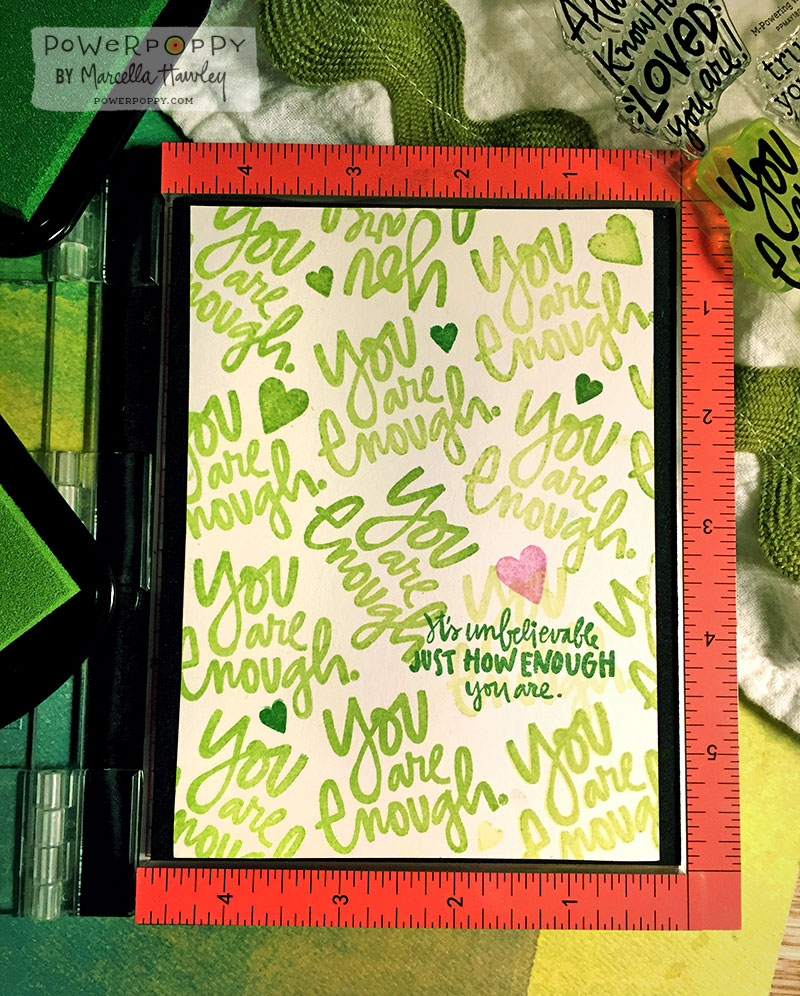 POWERPOPPY
BY Marcella Hawley
POWERPOPPY.COM
Know Ho
LOVED
you are!
M-Powering
tru
yo
You
4 3 2 1
You
are
enough.
You
are
enough.
You
are
enough.
1
2
3
4
5
You
are
enough.
You
are
enough.
You
are
enough.
You
are
enough.
You
are
enough.
It's unbelievable
JUST HOW ENOUGH
you are.
You
are
enough
You
are
enough.
You
are
enoug
4 3 2 1